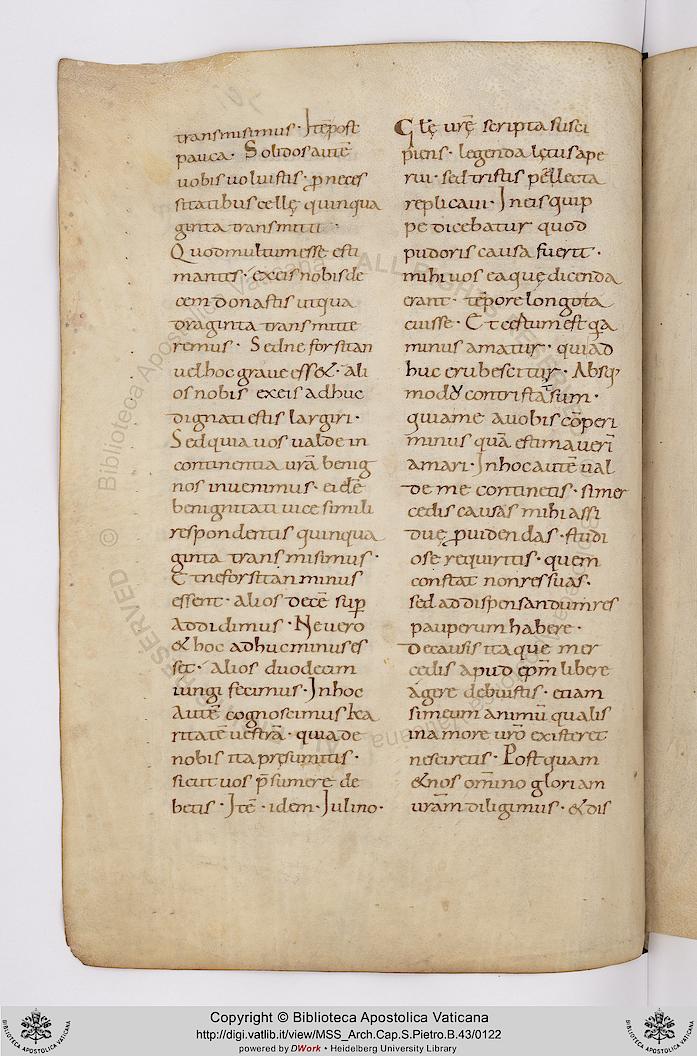 transmisimus · Itē post
pauca · Solidos autē
uobis uoluistis · ꝓ neces
sitatibus cellę quinqua
ginta transmitti ·
Quod multum esse esti
mantes · ex eis nobis de
cem donastis utqua
draginta transmitte
remus · Sed ne forsitan
uel hoc graue ess& · ali
os nobis ex eis adhuc
dignati estis largiri ·
Sed quia uos ualde in
continentia urā benig
nos inuenimus · eidē
benignitati uice simili
respondentes quinqua
ginta transmisimus ·
Et ne forsitan minus
essent · alios decē suꝑ
addidimus · Ne uero
& hoc adhuc minus es
set · alios duodecim
iungi fecimus · In hoc
autē cognoscimus ka
ritatē uestrā · quia de
nobis ita pręsumitis ·
sicut uos p̄sumere de
betis · Itē · idem · Iulino ·
Glę urę scripta susci
piens · legenda lętus ape
rui · sed tristis ꝑlecta
replicaui · In eis quip
pe dicebatur quod
pudoris causa fuerit ·
mihi uos ea quę dicenda
erant · tēpore longo ta
cuisse · Et certum est qa
minus amatur · quia ad
huc erubescitur · Absq;
modo contristatus sum ·
quia me a uobis cōperi
minus quā estimauerī
amari · In hoc autē ual
de me continetis · si mer
cedis causas mihi assi
due ꝓuidendas · studi
ose requiritis · quem
constat non res suas ·
sed ad dispensandum res
pauperum habere ·
De causis itaque mer
cedis apud ep̄m libere
agere debuistis · etiam
si me cum animū qualis
in amore uro existeret
nesciretis · Postquam
& nos om̄ino gloriam
uram diligimus · & dis
Copyright © Biblioteca Apostolica Vaticana
http://digi.vatlib.it/view/MSS_Arch.Cap.S.Pietro.B.43/0122
powered by DWork • Heidelberg University Library